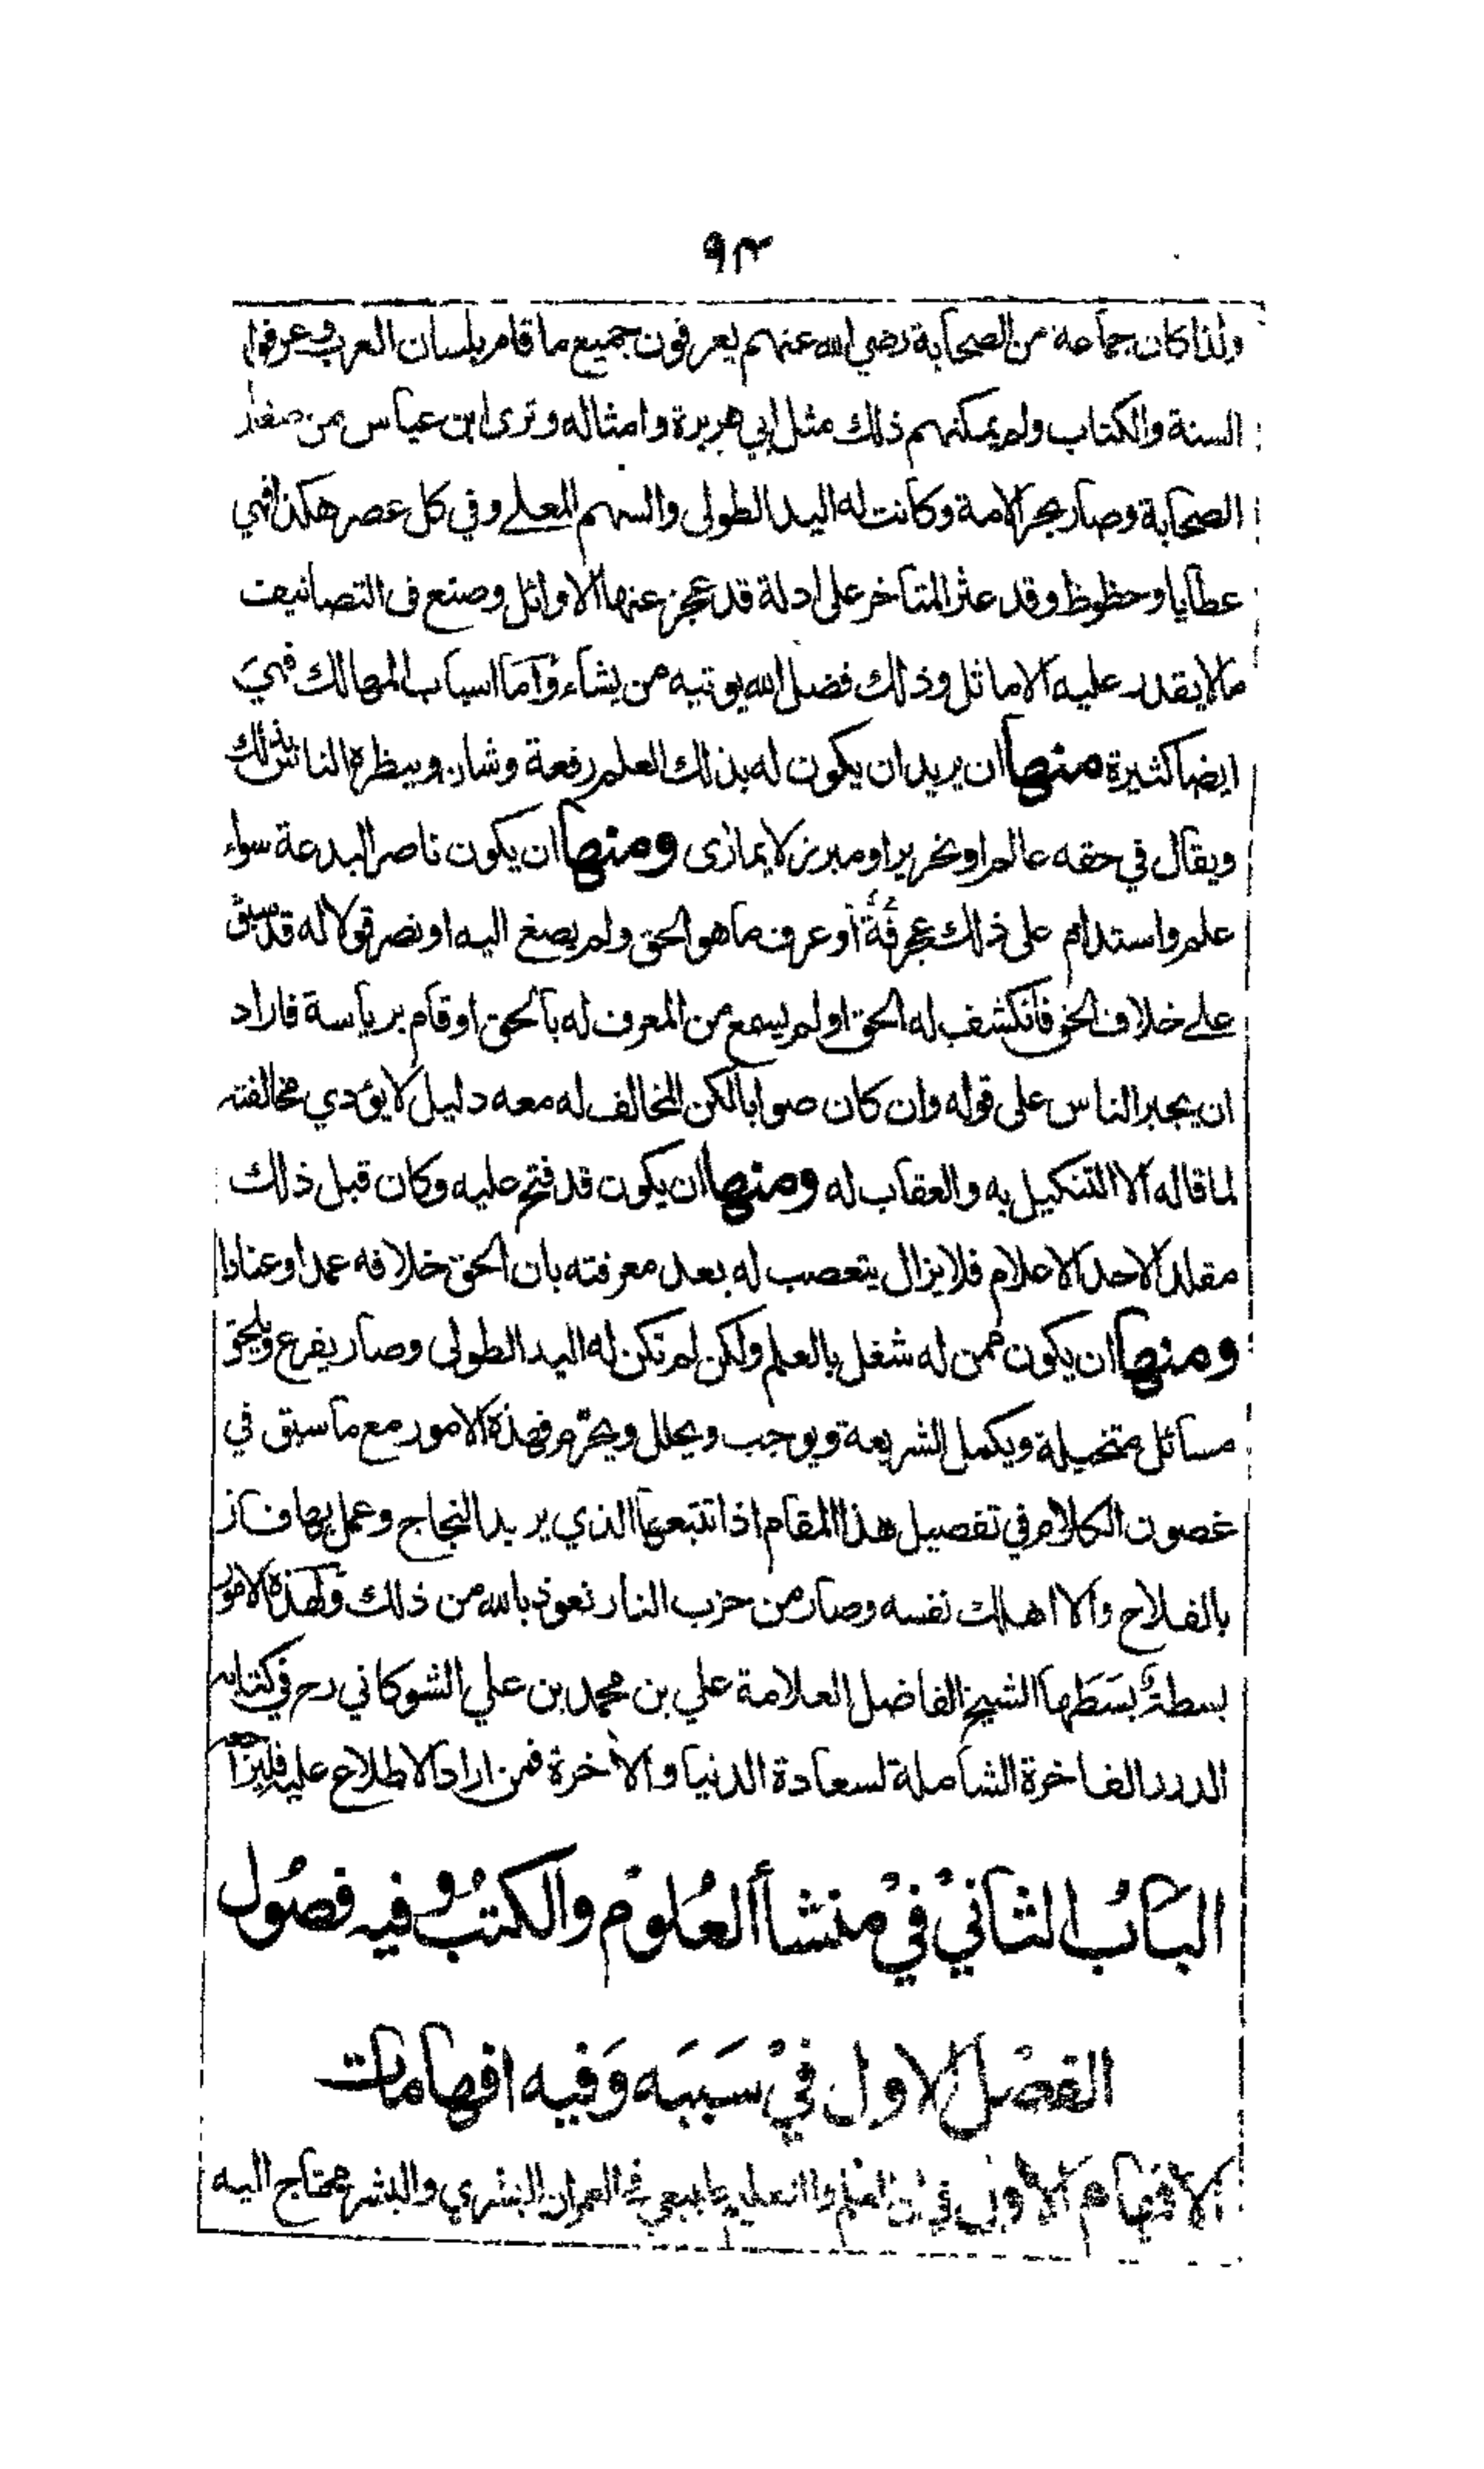 ٩٣
ولذا كان جماعة من الصحابة رضي الله عنهم يعرفون جميع ما قام بلسان العرب وعرفوا
السنة والكتاب ولم يمكنهم ذلك مثل ابي هريرة وامثاله وترى ابن عباس من صغار
الصحابة وصار بحر الامة وكانت له اليد الطولى والسهم المعلے وفي كل عصر هكذا فهي
عطايا وحظوظ وقد عثر المتاخر على ادلة قد عجز عنها الاوائل وصنع في التصانيف
مالا يقدر عليه الاماثل وذلك فضل الله يوتيه من يشاء وآما اسباب المهالك فهيَ
ايضا كثيرة منها ان يريد ان يكون له بذلك العلم رفعة وشان وينظره الناس بذلك
ويقال في حقه عالم او نحرير او مبرز لا يمازى ومنها ان يكون ناصر البدعة سواء
علم واستدام على ذلك عجرفةً أو عرف ما هو الحق ولم يصغ اليه او نصر قولا له قد سبق
علے خلاف الحق فانكشف له الحق او لم يسمع من المعرف له بالحق او قام برياسة فاراد
ان يجبر الناس على قوله وان كان صوابا لكن المخالف له معه دليل لا يؤدي مخالفته
لما قاله الا التنكيل به والعقاب له ومنها ان يكون قد فتح عليه وكان قبل ذلك
مقلدا لاحد الاعلام فلا يزال يتعصب له بعد معرفته بان الحق خلافه عمدا وعنادا
ومنها ان يكون ممن له شغل بالعلم ولكن لم تكن له اليد الطولى وصار يفرع ويلحق
مسائل متخيلة ويكمل الشريعة ويوجب ويحلل ويحرّم فهذه الامور مع ما سبق في
غصون الكلام في تفصيل هذا المقام اذا تتبعها الذي يريد النجاح وعمل بها فاز
بالفلاح والا اهلك نفسه وصار من حزب النار نعوذ بالله من ذلك ولهذه الامور
بسطةٌ بسَطها الشيخ الفاضل العلامة علي بن محمد بن علي الشوكاني رح في كتابه
الدرر الفاخرة الشاملة لسعادة الدنيا والآخرة فمن اراد الاطلاع عليه فليراجعه
البابُ الثانيْ فيْ منشأ العُلومْ والكتُب وفيه فصُول
الفصْل الاول فيْ سَببَه وَفيه افهامات
الافهام الاول في ان العلم والتعليم طبيعي في العمران البشري والبشر محتاج اليه